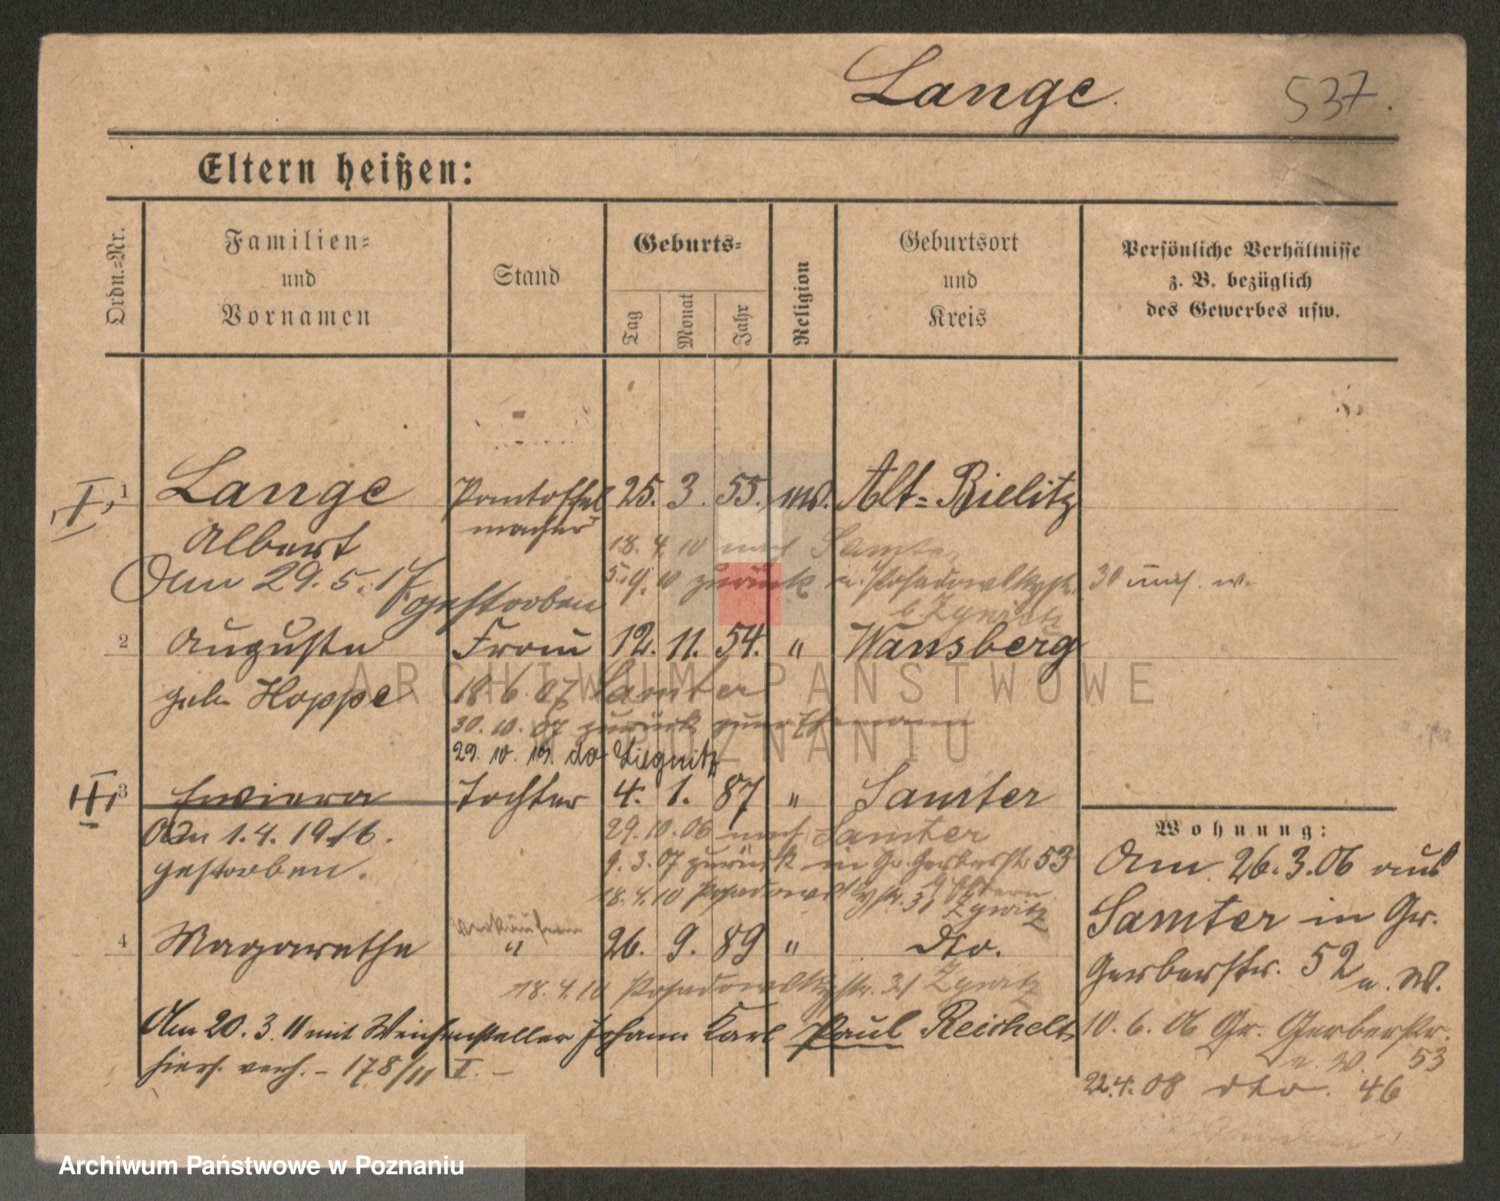 Lange.
537.
Eltern heißen:
Ordn.-Nr.
Familien-
und
Vornamen
Stand
Geburts-
Tag
Monat
Jahr
Religion
Geburtsort
und
Kreis
Persönliche Verhältnisse
z. B. bezüglich
des Gewerbes usw.
I. 1 Lange Pantoffel 25. 3. 55. ew. Alt-Bielitz
Albert macher
18. 4. 10 nach Samter
Am 29. 5. 17 gestorben
5. 9. 10 zurück 30 w.
b. Zywitz
2 Auguste Frau 12. 11. 54. " Wansberg
geb. Hoppe 18. 6. 07 Samter
30. 10. 07 zurück zum Ehemann
29. 10. do Liegnitz
II. 3 Tochter 4. 1. 87 " Samter
Am 1. 4. 1916. 29. 10. 06 nach Samter
gestorben. 9. 3. 07 zurück in Gr. Gerberstr 53
18. 4. 10 Posadowskystr. 31 b. Eltern
Zywitz
4 Magarethe " 26. 9. 89 " Dto.
18. 4. 10 Posadowskystr. 31 Zywitz
Am 20. 3. 11 mit Weichensteller Johann Karl Paul Reichelt
hiers. verh. - 178/11 I. -
Wohnung:
Am 26. 3. 06 aus
Samter in Gr.
Gerberstr. 52 b. W.
10. 6. 06 Gr. Gerberstr.
53
22. 4. 08 dto. 46
ARCHIWUM PAŃSTWOWE
W POZNANIU
Archiwum Państwowe w Poznaniu